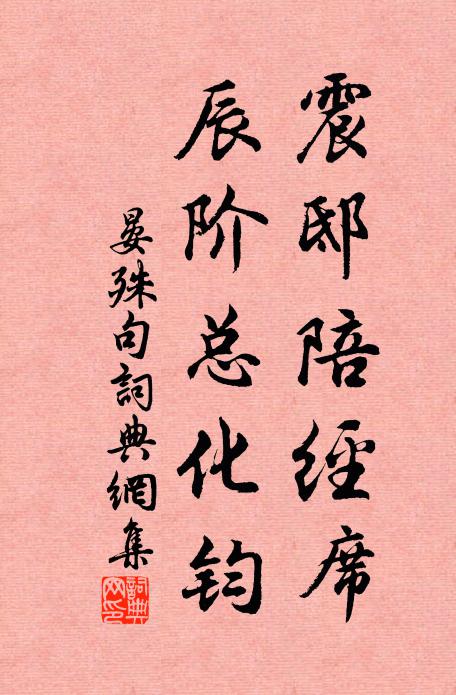 震邸陪經席
辰阶总化钧
晏殊句詞典網集
詞典
网印